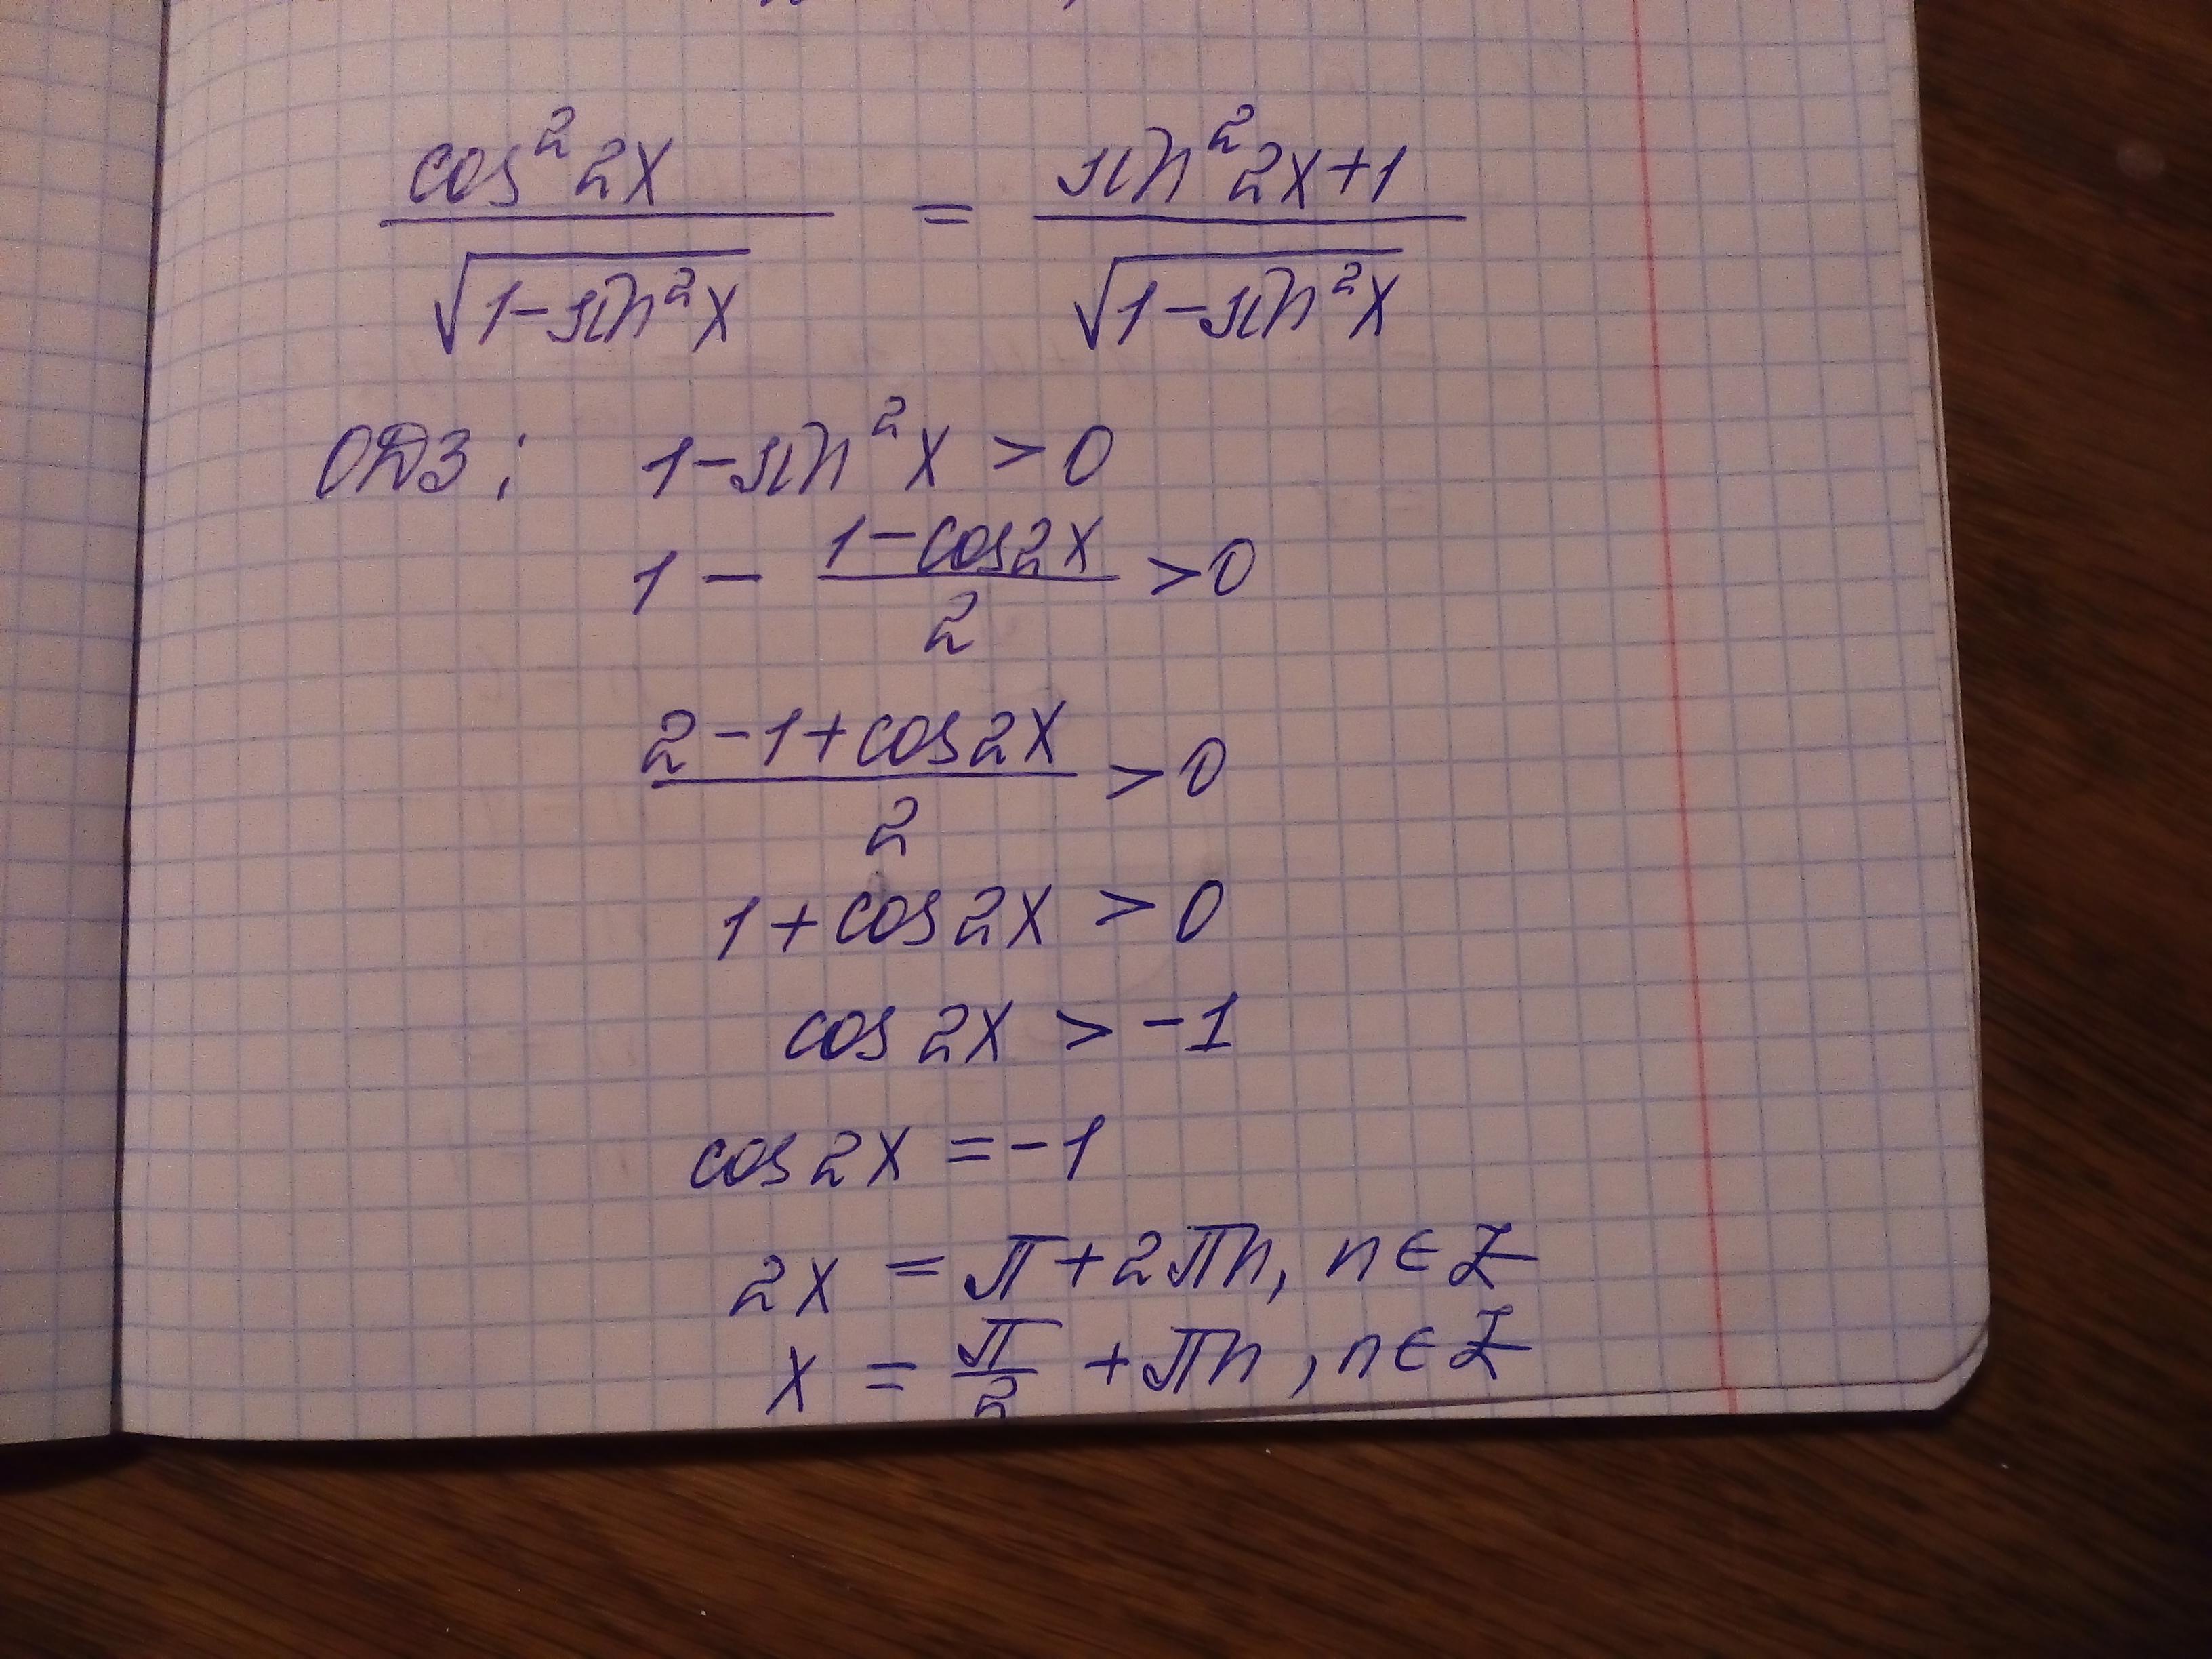 cos²2x / √(1-sin²x) = sin²2x+1 / √(1-sin²x)
ОДЗ: 1-sin²x > 0
1 - (1-cos2x)/2 > 0
(2-1+cos2x)/2 > 0
1+cos2x > 0
cos2x > -1
cos2x = -1
2x = π+2πn, n∈Z
x = π/2 + πn, n∈Z